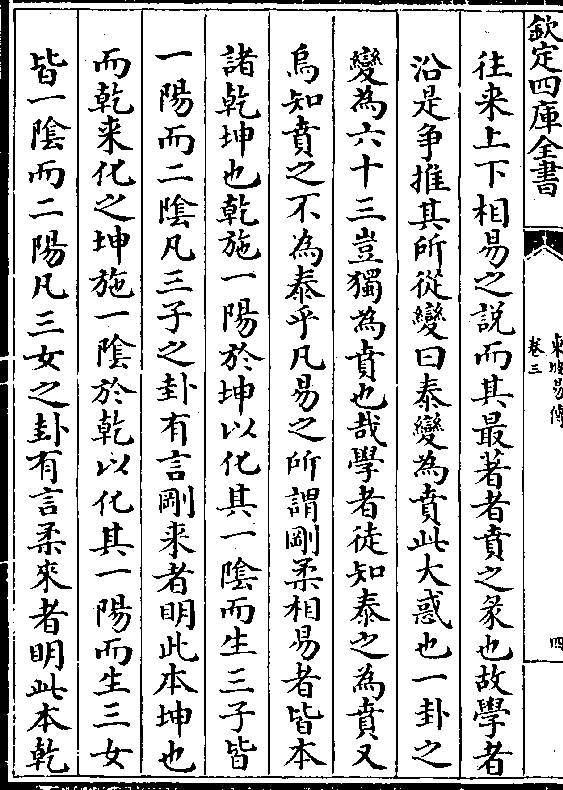 欽定四庫全書
東坡易傳
卷三
四
往來上下相易之說而其最著者賁之彖也故學者
沿是爭推其所從變曰泰變為賁此大惑也一卦之
變為六十三豈獨為賁也哉學者徒知泰之為賁又
烏知賁之不為泰乎凡易之所謂剛柔相易者皆本
諸乾坤也乾施一陽於坤以化其一陰而生三子皆
一陽而二陰凡三子之卦有言剛来者明此本坤也
而乾来化之坤施一陰於乾以化其一陽而生三女
皆一陰而二陽凡三女之卦有言柔來者明此本乾